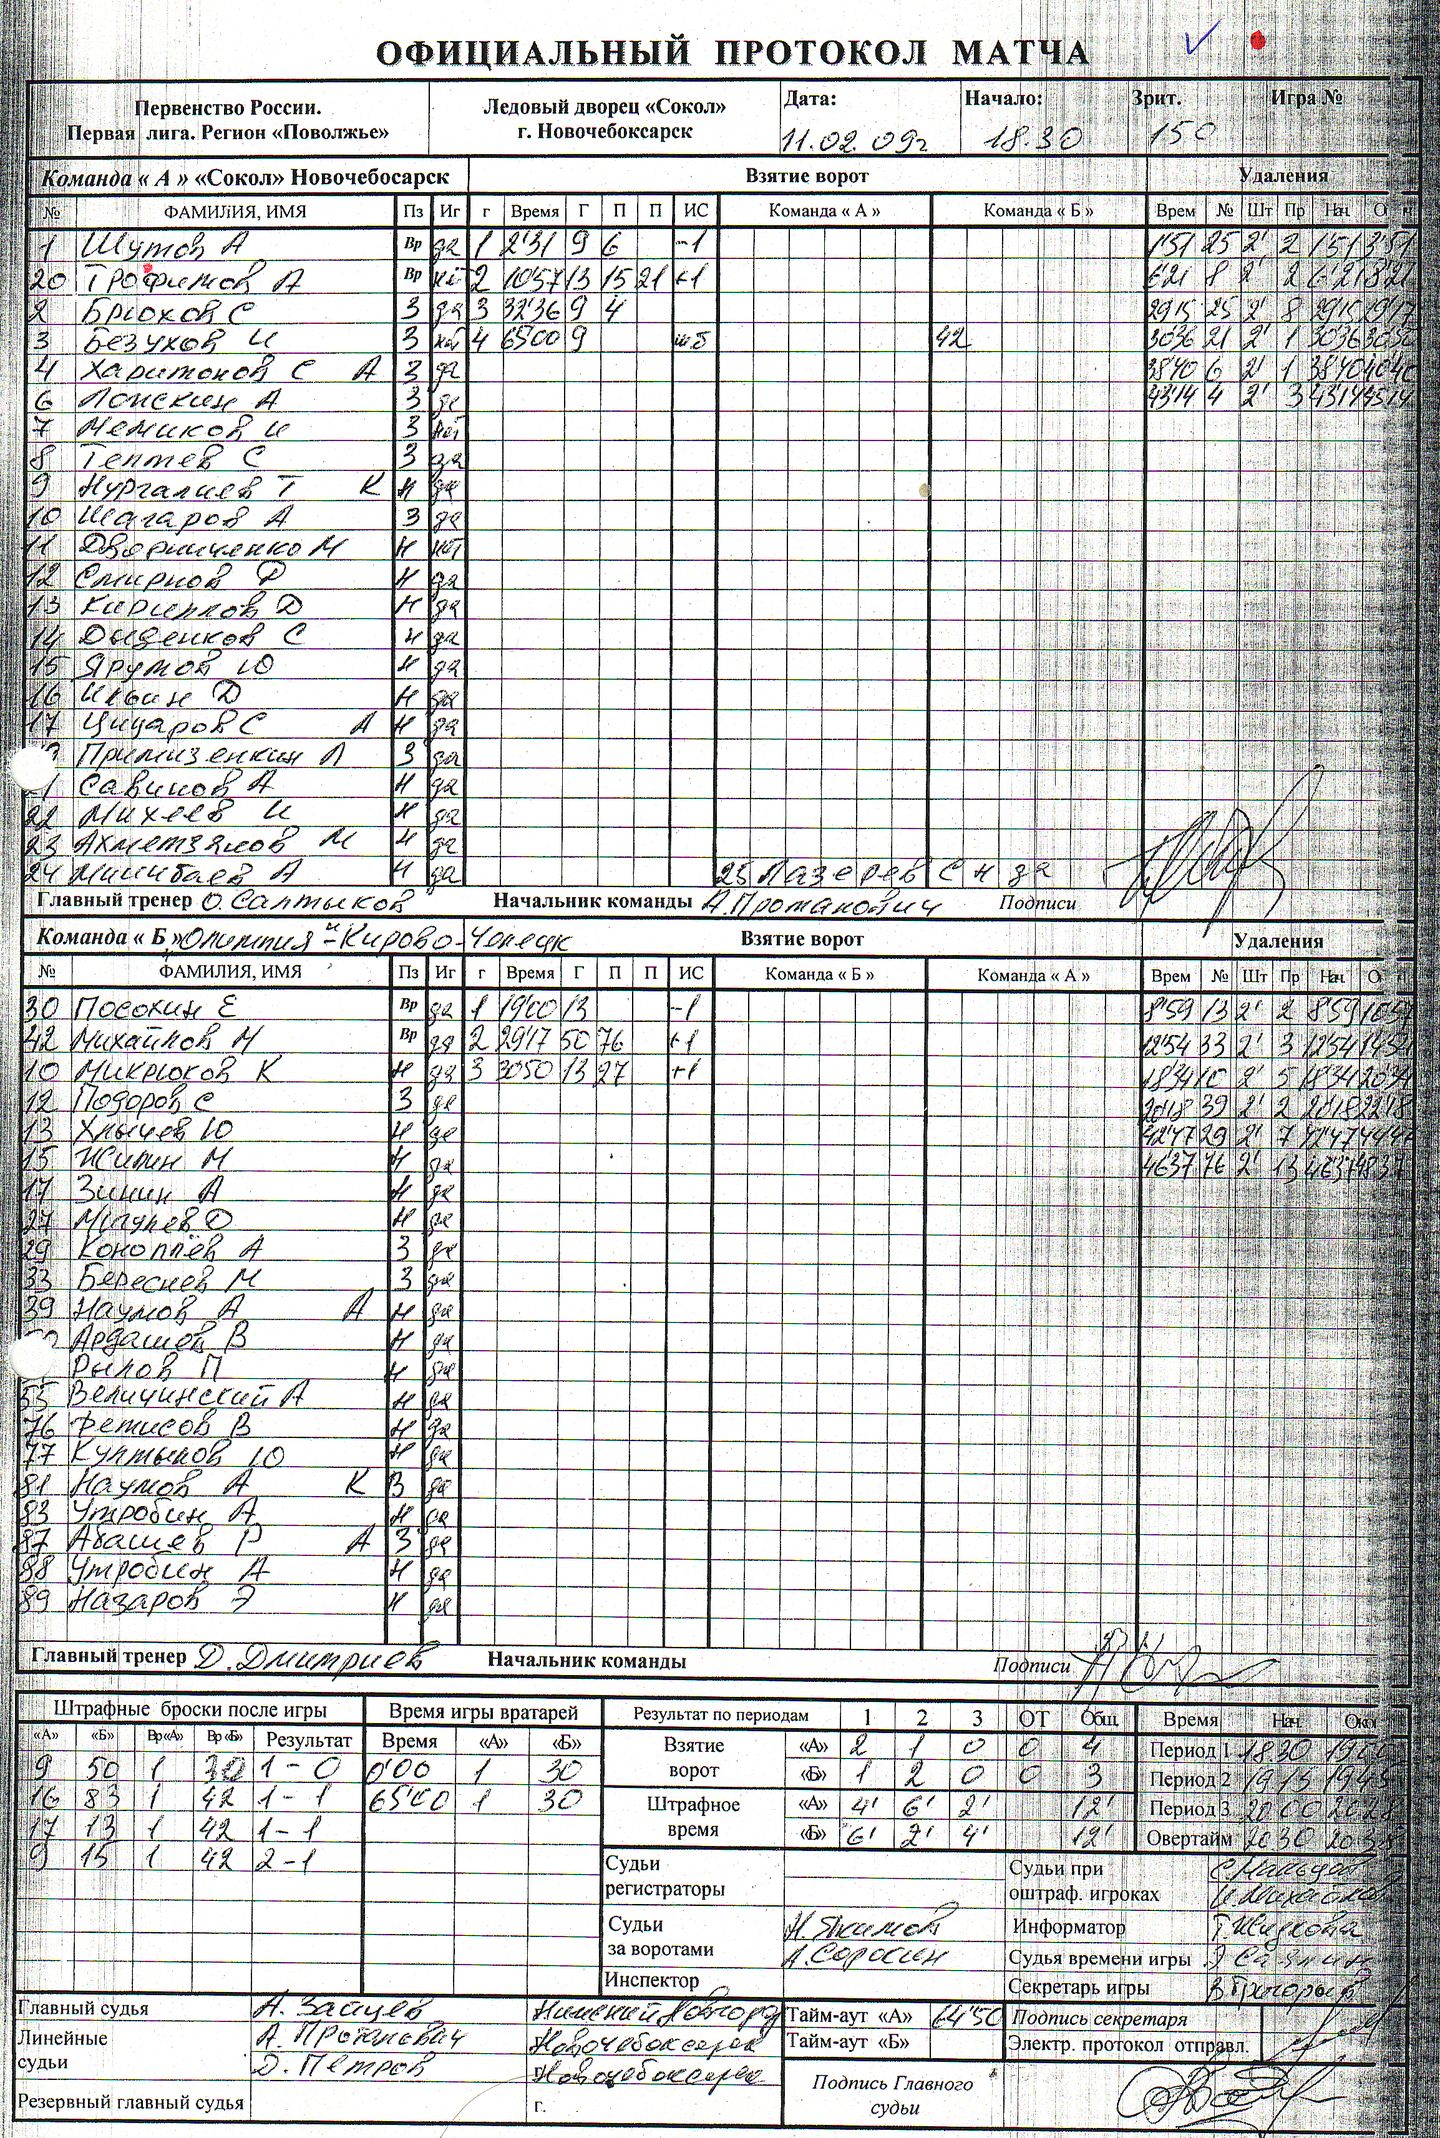 ОФИЦИАЛЬНЫЙ ПРОТОКОЛ МАТЧА
Первенство России. Первая лига. Регион «Поволжье»
Ледовый дворец «Сокол» г. Новочебоксарск
Дата: 11.02.09г
Начало: 18.30
Зрит. 150
Игра №
Команда « А » «Сокол» Новочебосарск Взятие ворот Удаления
№ ФАМИЛИЯ, ИМЯ Пз Иг г Время Г П П ИС Команда « А » Команда « Б » Врем № Шт Пр Нач.
1 Шутов А Вр да 1 2'31 9 6 -1 1'51 25 2' 2 1'51 3'51
20 Трофимов А Вр нет 2 10'57 13 15 21 +1 6'21 8 2' 2 6'21 8'21
2 Брюхов С З да 3 32'36 9 4 29'15 25 2' 8 29'15 29'17
3 Безухов И З нет 4 65'00 9 шб 42 30'36 21 2' 1 30'36 30'50
4 Харитонов С А З да 38'40 6 2' 1 38'40 40'40
6 Ложкин А З да 43'14 4 2' 3 43'14 45'14
7 Немиков И З нет
8 Тептев С З да
9 Нургалиев Т К Н да
10 Шагаров А З да
11 Дворниченко М Н нет
12 Смирнов Р Н да
13 Кириллов Д Н да
14 Дыденков С Н да
15 Ярумов Ю Н да
16 Ильин Д Н да
17 Цицаров С А Н да
Примизенкин Л З да
Савинов А Н да
22 Михеев И Н да
23 Ахметзянов М Н да
24 Минибаев А Н да 25 Лазерев С Н да
Главный тренер О. Салтыков Начальник команды А. Протанович Подписи
Команда « Б » "Олимпия" - Кирово-Чепецк Взятие ворот Удаления
№ ФАМИЛИЯ, ИМЯ Пз Иг г Время Г П П ИС Команда « Б » Команда « А » Врем № Шт Пр Нач.
30 Посохин Е Вр да 1 19'00 13 -1 8'59 13 2' 2 8'59 10'57
42 Михайлов М Вр да 2 29'17 50 76 +1 12'54 33 2' 3 12'54 14'54
10 Микрюков К Н да 3 30'50 13 27 +1 18'34 10 2' 5 18'34 20'34
12 Подоров С З да 20'18 39 2' 2 20'18 22'18
13 Хлычев Ю Н да 42'47 29 2' 7 42'47 44'47
15 Жилин М Н да 46'37 76 2' 13 46'37 48'37
17 Зинин А Н да
27 Мигулев О Н да
29 Коноплёв А З да
33 Береснев М З да
39 Наумов А А Н да
Ардашев В Н да
Рылов П Н да
55 Величинский А Н да
76 Фетисов В Н да
77 Култынов Ю Н да
81 Наумов А К В да
83 Утробин А Н да
87 Абашев Р А З да
88 Утробин А Н да
89 Назаров Э Н да
Главный тренер Д. Дмитриев Начальник команды Подписи
Штрафные броски после игры Время игры вратарей Результат по периодам 1 2 3 ОТ Общ. Время Нач. Окон
«А» «Б» Вр«А» Вр«Б» Результат Время «А» «Б»
Взятие ворот «А» 2 1 0 0 4 Период 1 18.30 19.00
9 50 1 30 1-0 0'00 1 30
«Б» 1 2 0 0 3 Период 2 19 15 19 45
16 83 1 42 1-1 65'00 1 30
Штрафное время «А» 4' 6' 2' 12' Период 3 20 00 20.28
17 13 1 42 1-1
«Б» 6' 2' 4' 12' Овертайм 20.30 20.38
9 15 1 42 2-1
Судьи регистраторы
Судьи при оштраф. игроках И. Михайлов
Судьи за воротами Н. Якимов А. Соросин
Информатор Т. Жидкова
Судья времени игры
Инспектор
Секретарь игры В. Григорьев
Главный судья А. Зайцев Нижний Новгород Тайм-аут «А» 64'50 Подпись секретаря
Линейные судьи А. Протанович Новочебоксарск Тайм-аут «Б» Электр. протокол отправл.
Д. Петров Новочебоксарск
Подпись Главного судьи
Резервный главный судья г.